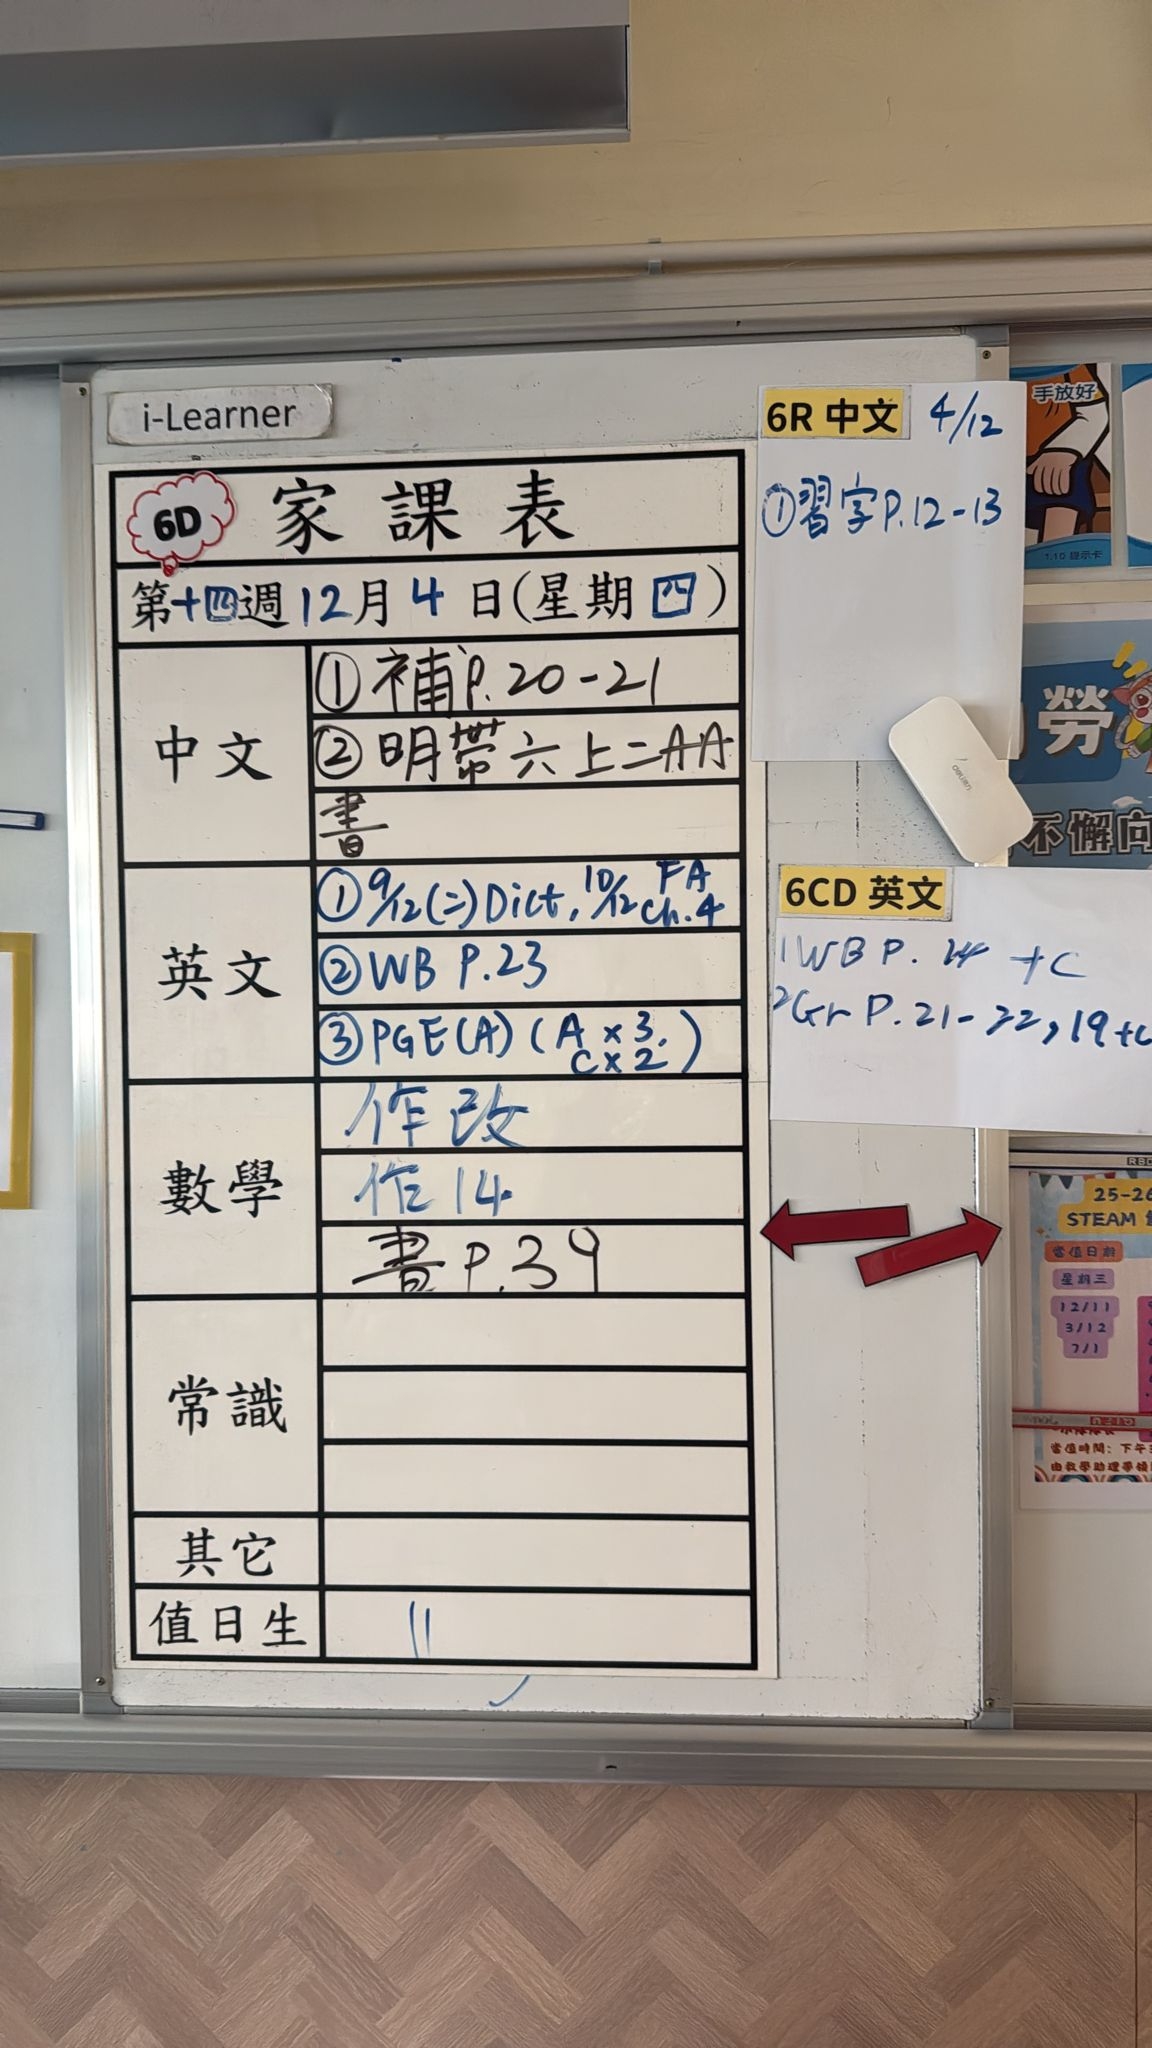 i-Learner
6D 家課表
第十四週12月4日(星期四)
中文
①補P.20-21
②明帶六上二AA
書
英文
①9/12(二)Dict, 10/12 FA Ch.4
②WB P.23
③PGE(A)(A×3, C×2)
數學
作改
作14
書P.39
常識
其它
值日生
11
6R 中文 4/12
①習字P.12-13
6CD 英文
1WB P. 24 +C
2Gr P.21-22,19+C
手放好
1.10 提示卡
勞
不懈向
25-26
STEAM
當值日期
星期三
12/11
3/12
7/1
當值時間：下午
由教學助理帶領
deli